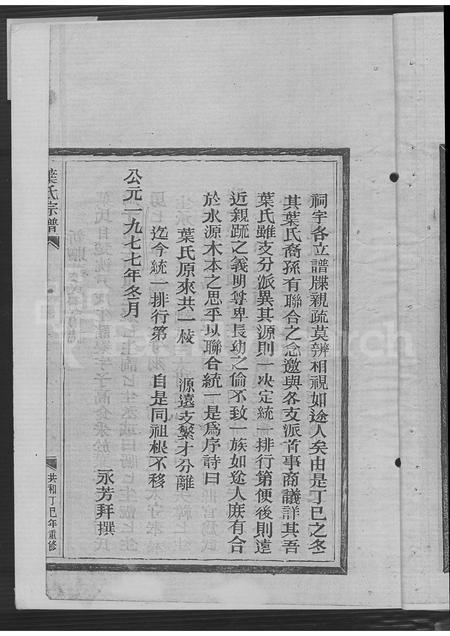 祠宇各立譜牒親疏莫辨相視如途人矣由是丁巳之冬
其葉氏裔孫有聯合之念邀與各支派首事商議詳其吾
葉氏雖支分派異其源則一决定統一排行第使後則遠
近親疏之義明尊卑長幼之倫不致一族如途人庶有合
於水源木本之思乎以聯合統一是爲序詩曰
葉氏原來共一枝 源遠支繁才分離
迄今統一排行第 自是同祖根不移
公元一九七七年冬月 永芳拜撰
葉氏宗譜
共和丁巳年重修